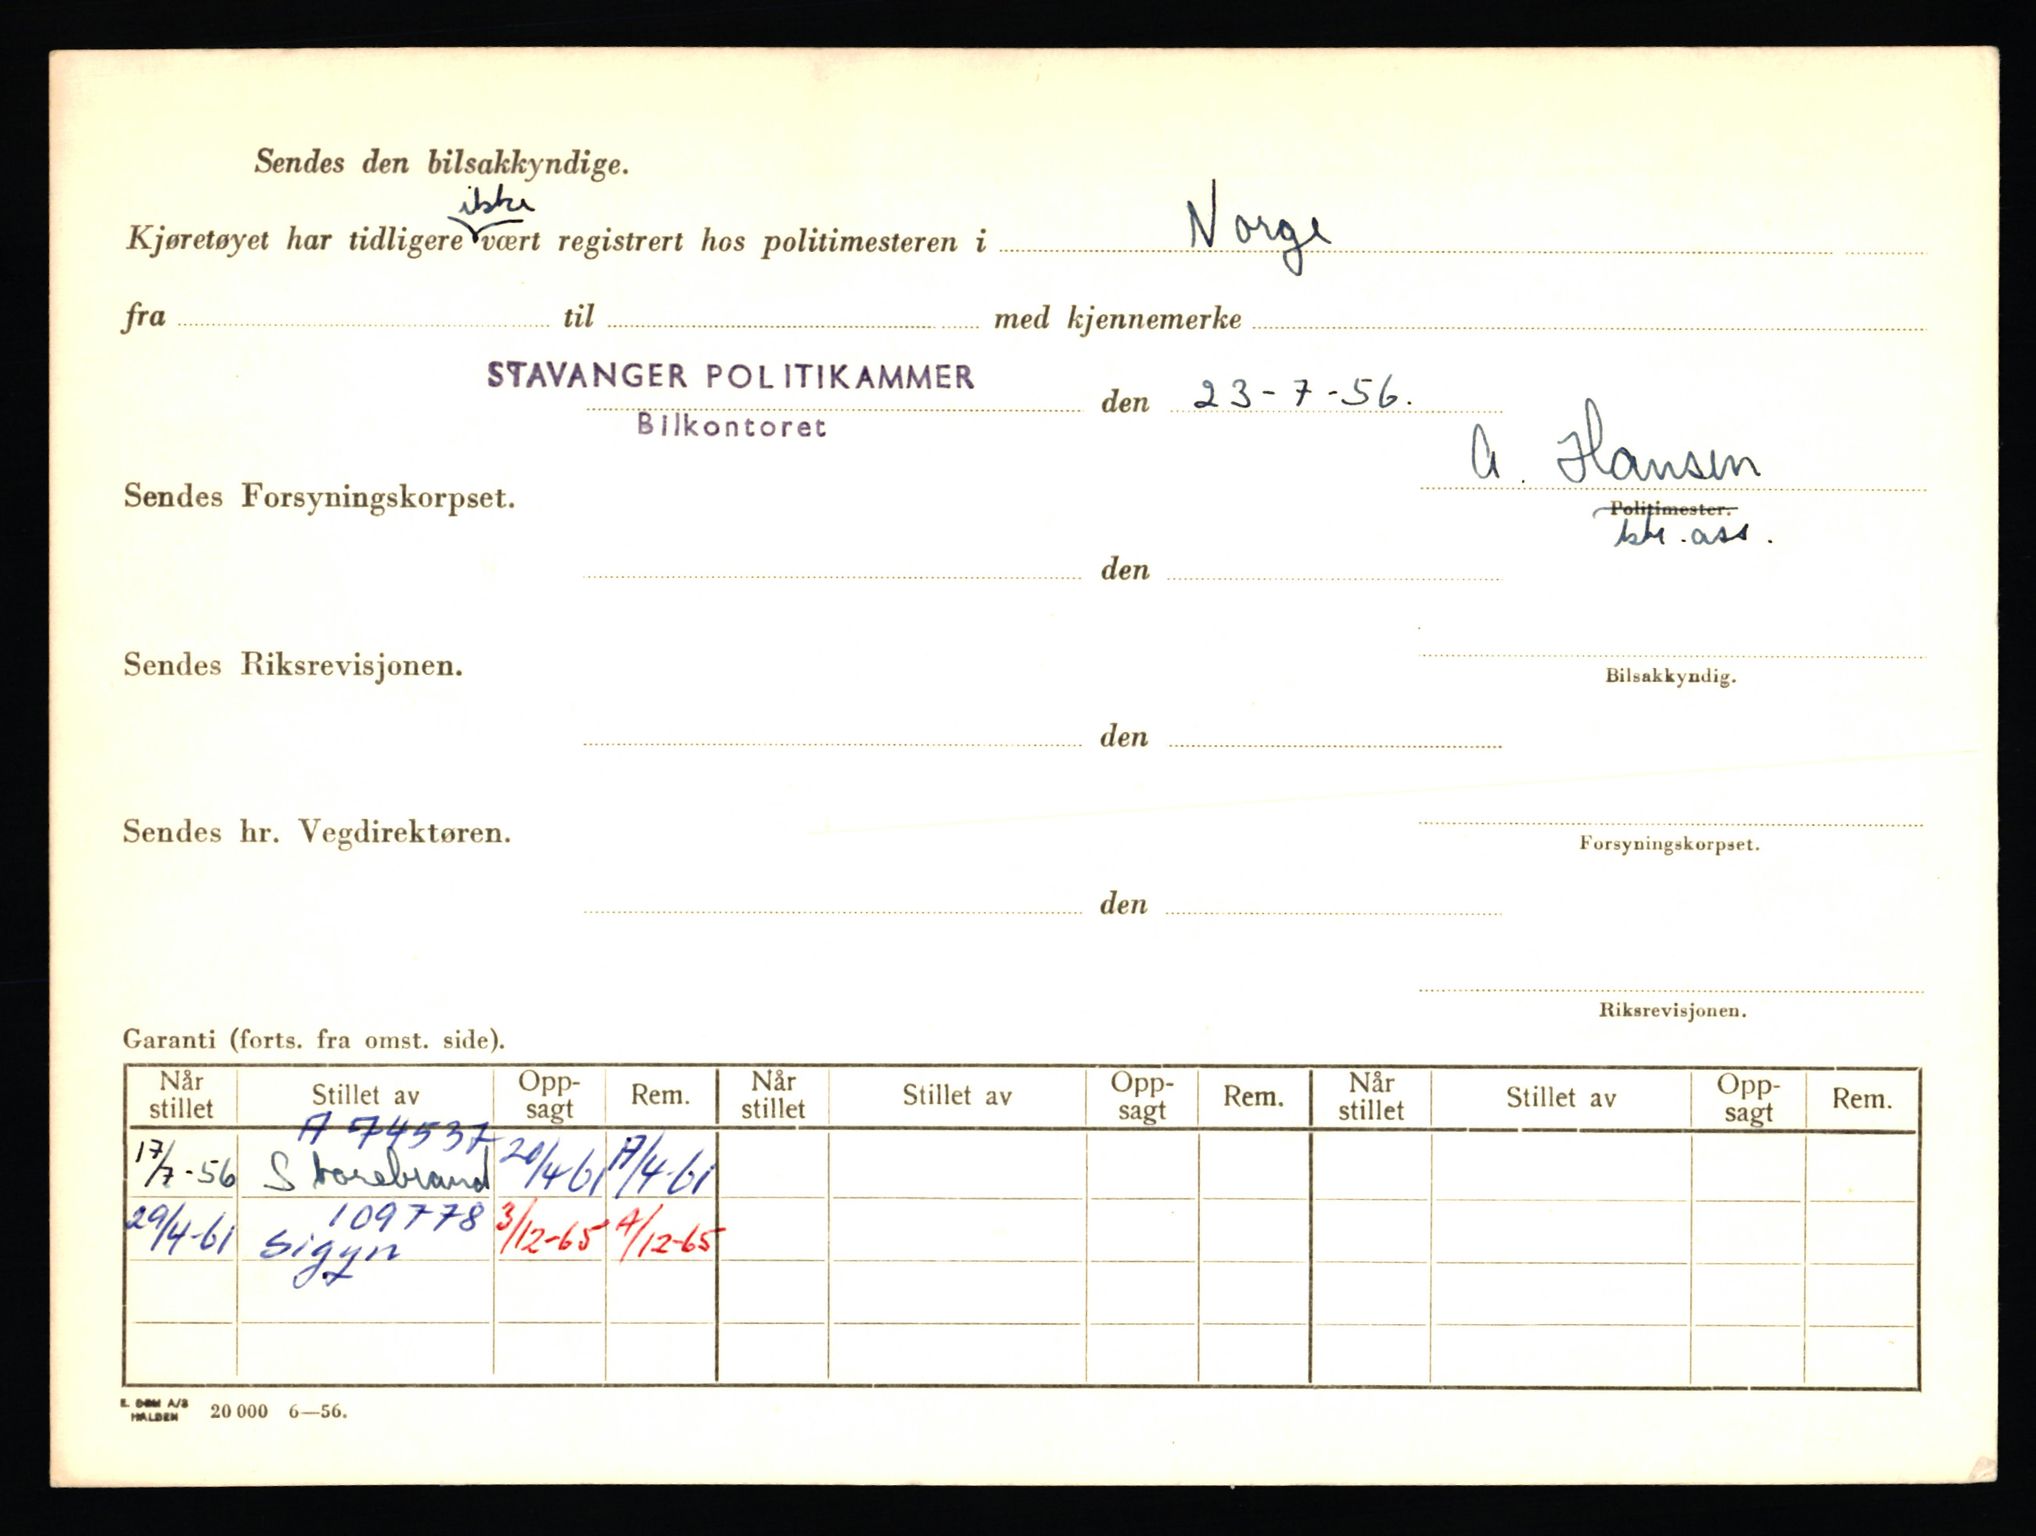 Sendes den bilsakkyndige.
ikke
Kjøretøyet har tidligere vært registrert hos politimesteren i Norge
fra til med kjennemerke
STAVANGER POLITIKAMMER
Bilkontoret
den 23-7-56.
A. Hansen
Sendes Forsyningskorpset.
Politimester.
ktr. ass.
den
Sendes Riksrevisjonen.
Bilsakkyndig.
den
Sendes hr. Vegdirektøren.
Forsyningskorpset.
den
Riksrevisjonen.
Garanti (forts. fra omst. side).
Når stillet Stillet av Opp-sagt Rem. Når stillet Stillet av Opp-sagt Rem. Når stillet Stillet av Opp-sagt Rem.
A 74537
17/7-56 Storebrand 20/4-61 17/4-61
109778
29/4-61 Sigyn 3/12-65 /12-65
E. DØM A/S
HALDEN
20 000 6—56.